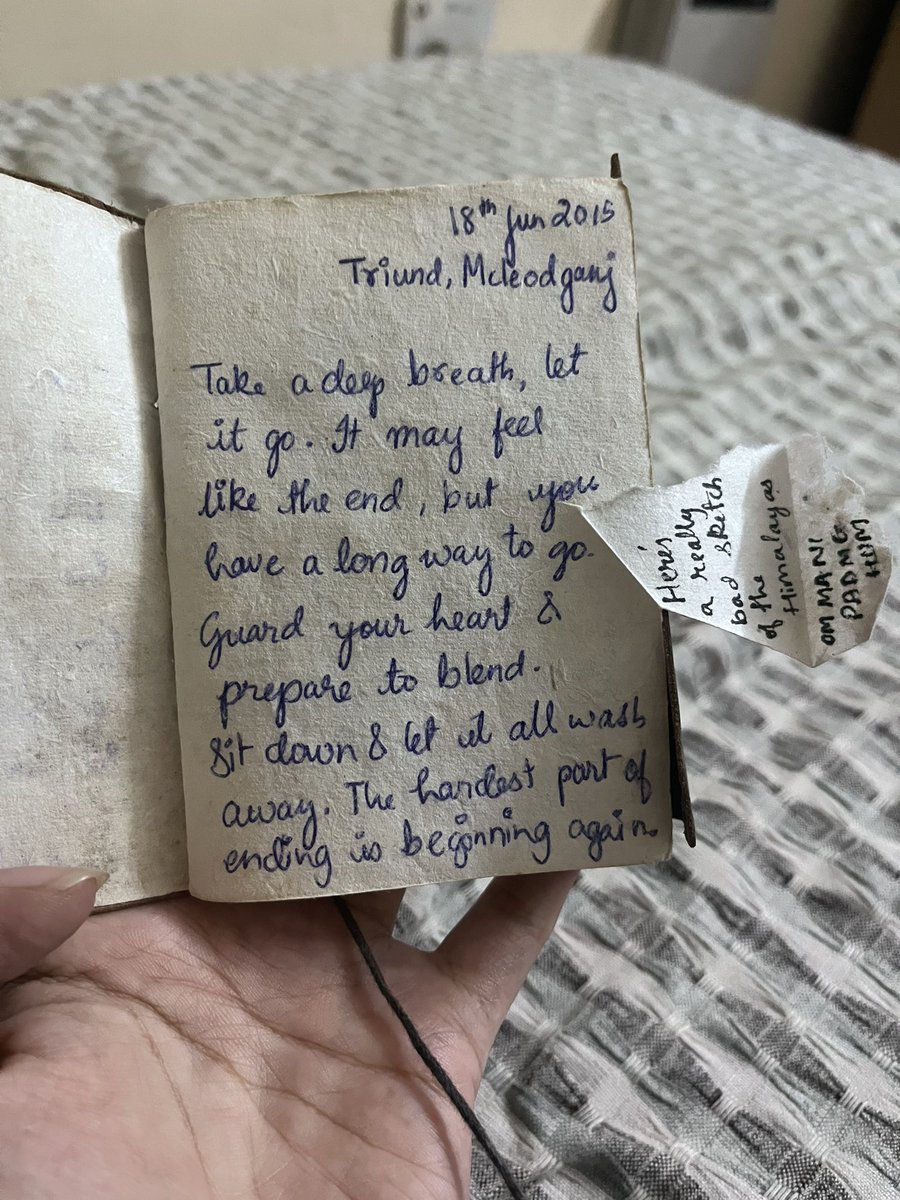 18th Jun 2015
Triund, Mcleodganj
Take a deep breath, let
it go. It may feel
like the end, but you
have a long way to go.
Guard your heart &
prepare to blend.
Sit down & let it all wash
away. The hardest part of
ending is beginning again.
Here's
a really
bad sketch
of the
Himalayas
OM MANI
PADME
HUM